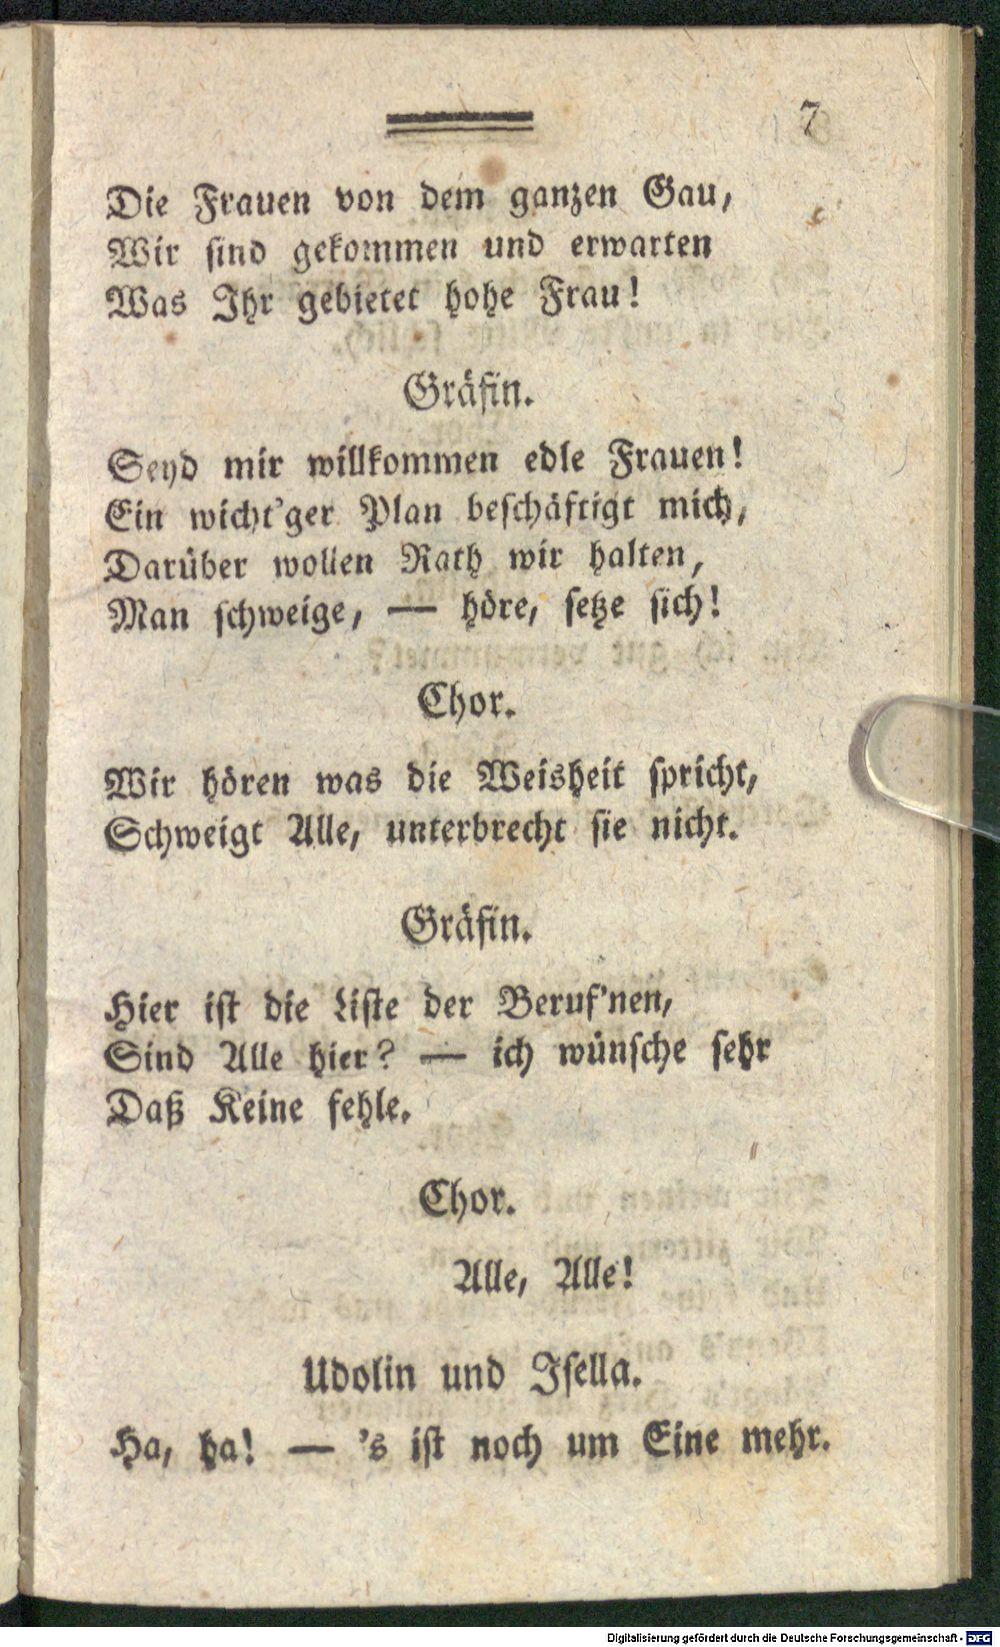 7
Die Frauen von dem ganzen Gau,
Wir sind gekommen und erwarten
Was Ihr gebietet hohe Frau!
Gräfin.
Seyd mir willkommen edle Frauen!
Ein wicht'ger Plan beschäftigt mich,
Darüber wollen Rath wir halten,
Man schweige, — höre, setze sich!
Chor.
Wir hören was die Weisheit spricht,
Schweigt Alle, unterbrecht sie nicht.
Gräfin.
Hier ist die Liste der Beruf'nen,
Sind Alle hier? — ich wünsche sehr
Daß Keine fehle.
Chor.
Alle, Alle!
Udolin und Isella.
Ha, ha! — 's ist noch um Eine mehr.
Digitalisierung gefördert durch die Deutsche Forschungsgemeinschaft - DFG